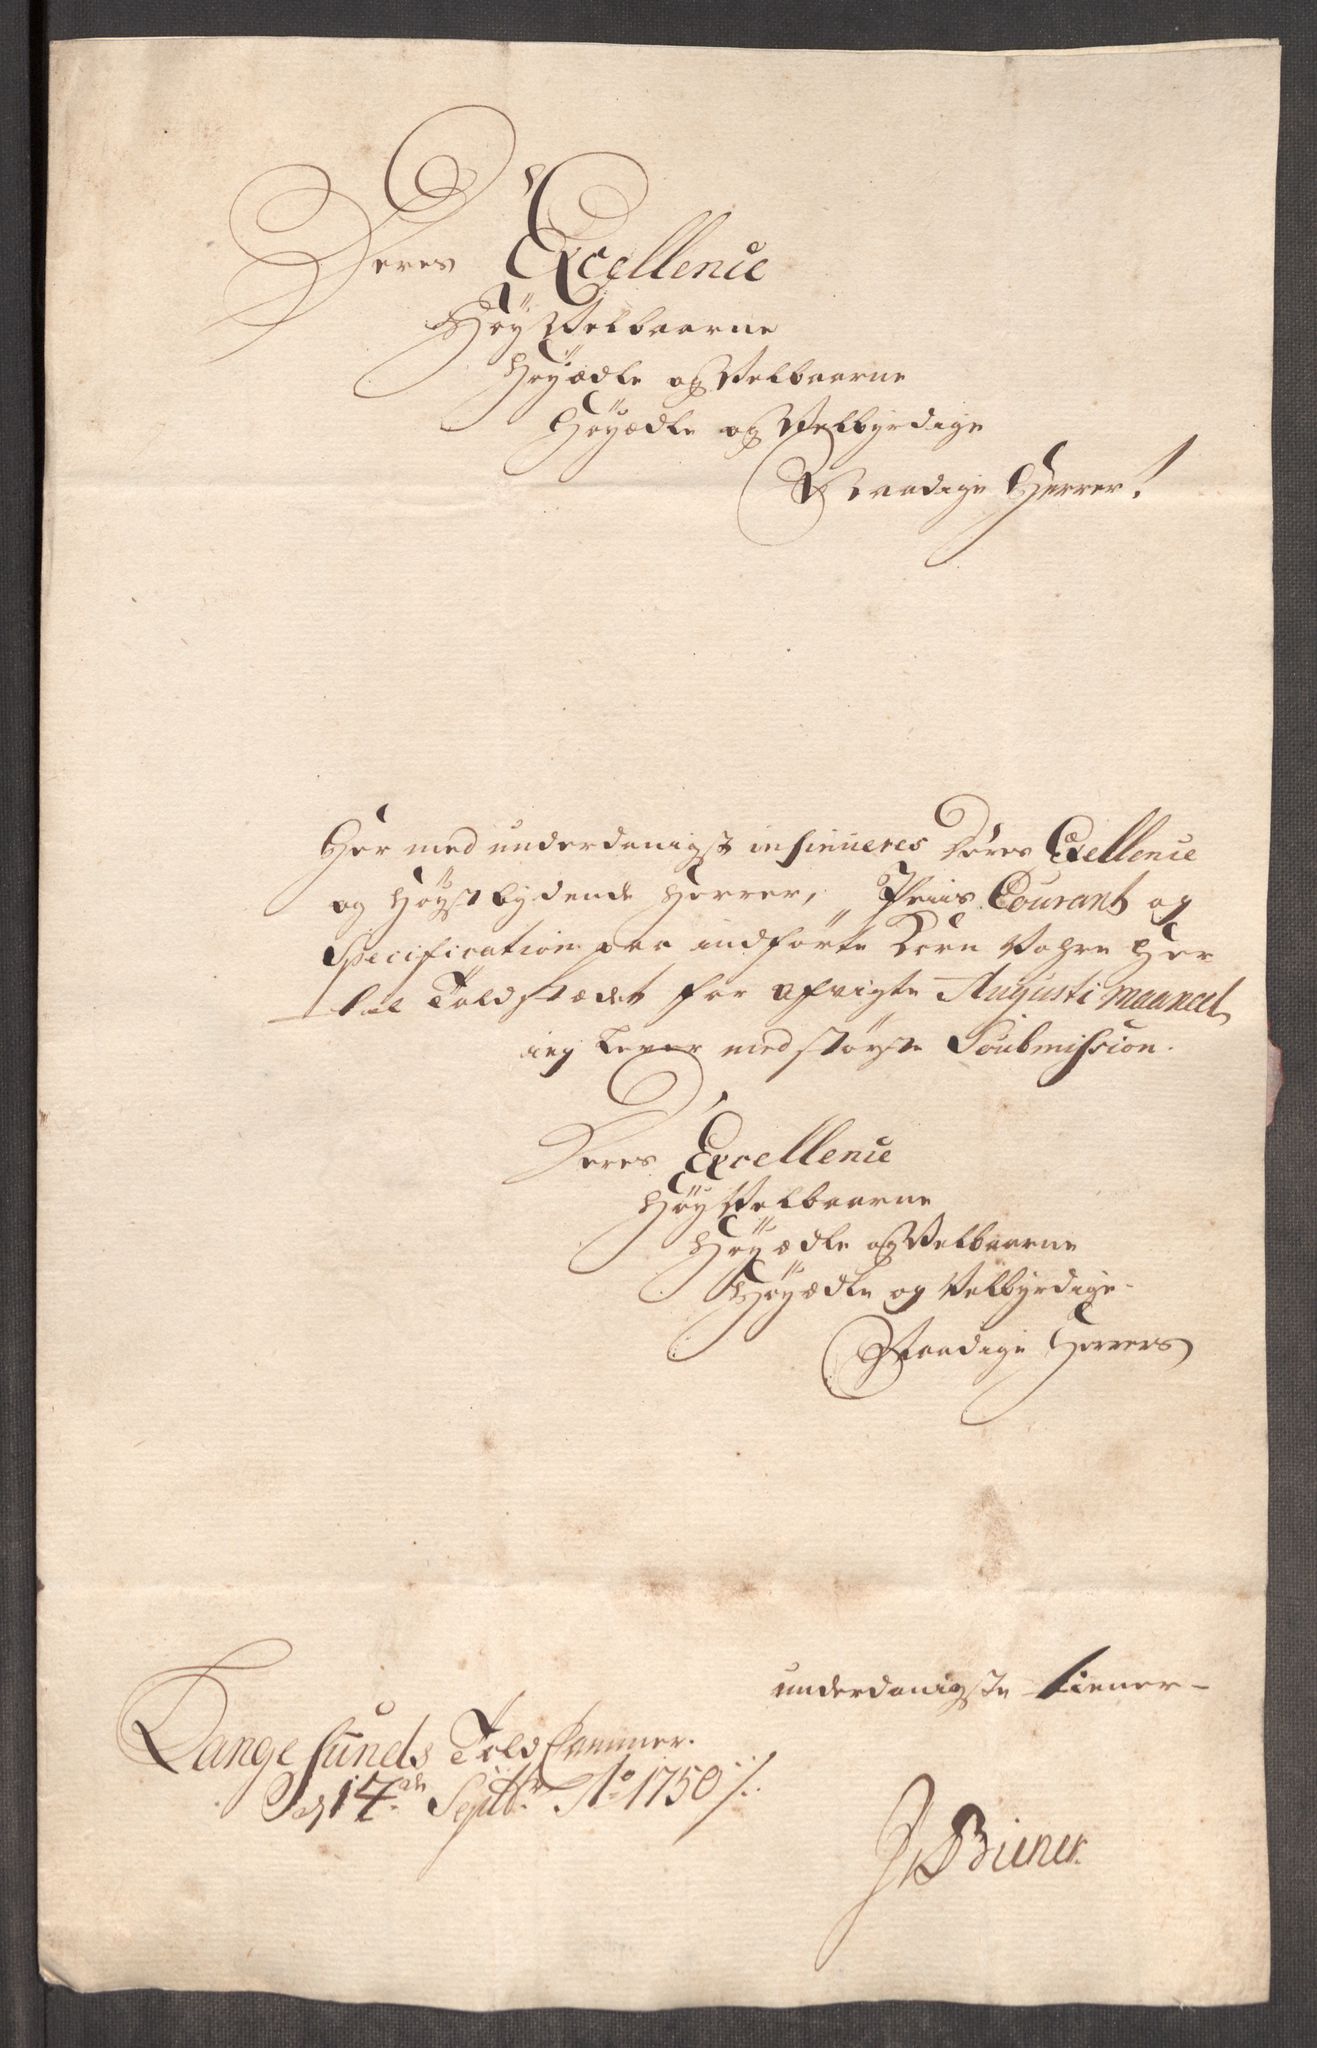 Deres Excellence
Høy Velbaarne
Høyædle og Velbaarne
Høyædle og Velbyrdige
Naadige Herrer!
Her med underdanigst insinueres Deres Excellence
og Høystbydende Herrer, Priis Courant og
Specification paa indførte Korn Vahre Her
til Toldstædet for afvigte Augusti Maaned
ieg lever med største Soubmission.
Deres Excellence
Høy Velbaarne
Høyædle og Velbaarne
Høyædle og Velbyrdige
Naadige Herrers
underdanigste tiener
Langesunds Told Cammer.
d 14de Septbr Ao 1750
Biener